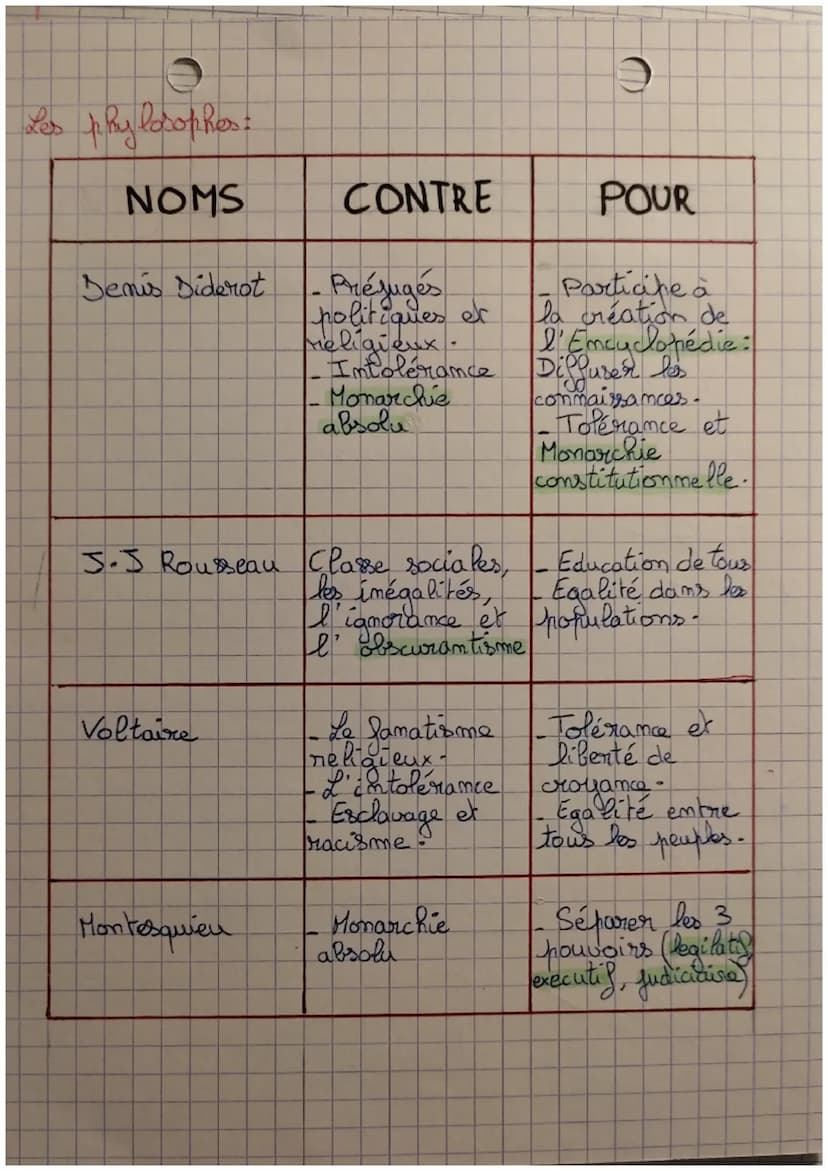 Les phylosophes:
NOMS
CONTRE
POUR
Denis Diderot
- Préjugés
politiques et
religieux.
- Intolérance
- Monarchie
absolu
- Participe à
la création de
l'Encyclopédie:
Diffuser les
connaissances.
- Tolérance et
Monarchie
constitutionnelle.
J.J Rousseau
Classe sociales,
les inégalités,
l'ignorance et
l' obscurantisme
- Education de tous
- Egalité dans les
populations.
Voltaire
- Le fanatisme
religieux.
- L'intolérance
- Esclavage et
racisme.
- Tolérance et
liberté de
croyance.
- Egalité entre
tous les peuples.
Montesquieu
- Monarchie
absolu
- Séparer les 3
pouvoirs (legilatif,
executif, judiciaise)